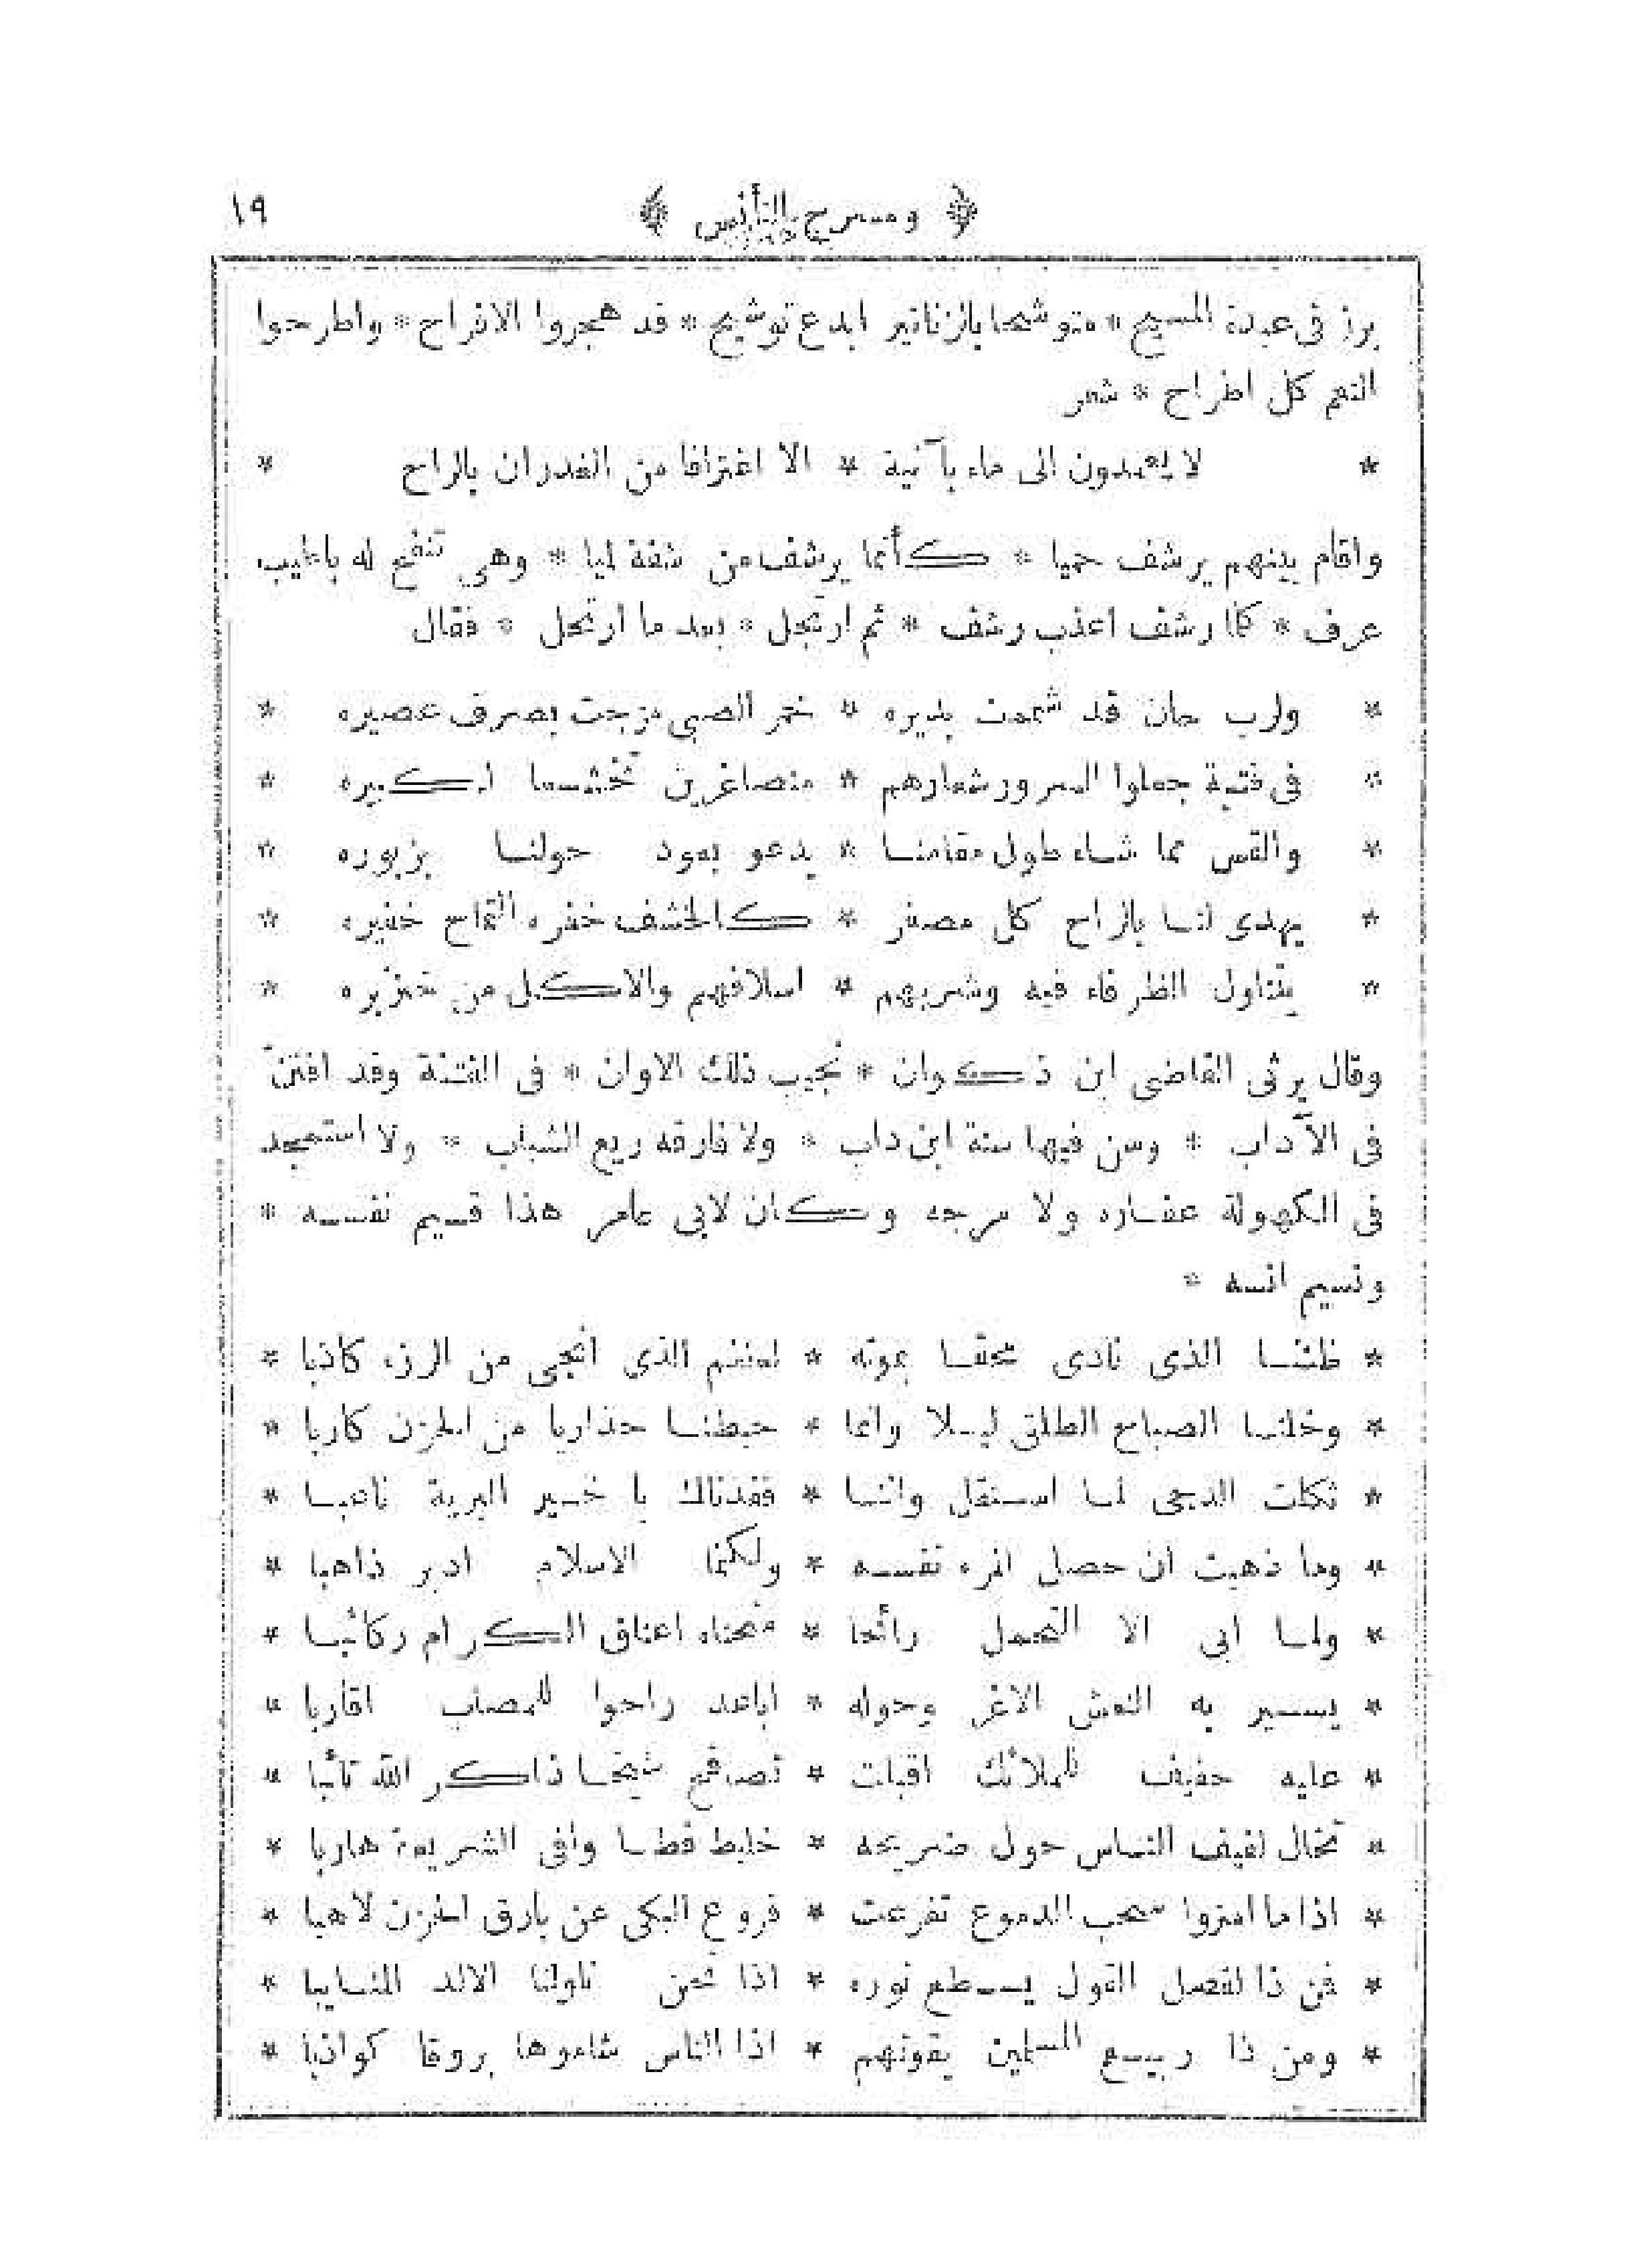 ﴿ ومسرح التأنس ﴾ ١٩
برز فى عبدة المسيح * متوشحا بالزنانير ابدع توشيح * قد هجروا الافراح * واطرحوا
النعم كل اطراح * شعر
* لا يعمدون الى ماء بآنية * الا اغترافا من الغدران بالراح *
واقام بينهم يرشف حميا * كأنما يرشف من شفة لميا * وهي تنفح له باطيب
عرف * كلما رشف اعذب رشف * ثم ارتجل * بعد ما ارتحل * فقال
* ولرب حان قد شممت بديره * خمر الصبى مزجت بصرف عصيره *
* فى فتية جعلوا السرور شعارهم * متصاغرين تخشعا لكبيره *
* والقس مما شاء طول مقامنا * يدعو بعود حولنا بزبوره *
* يهدى لنا بالراح كل مصفر * كالخشف خفره التماح خفيره *
* يتناول الظرفاء فيه وشربهم * اسلافهم والاكل من خنزيره *
وقال يرثى القاضى ابن ذكوان * نجيب ذلك الاوان * فى الفتنة وقد افتن
فى الآداب * وسن فيها سنة ابن داب * ولا فارقه ريع الشباب * ولا استمجد
فى الكهولة عفاره ولا مرجه وكان لابي عامر هذا قسيم نفسه *
ونسيم انسه *
* ظننا الذى نادى محقا بموته * لعظم الذي انجى من الرزء كاذبا *
* وخلنا الصباح الطلق ليلا وانما * هبطنا حذاريا من الحزن كاربا *
* ثكلت الدجى لما استقل واننا * فقدناك يا خير البرية ناعبا *
* وما ذهبت ان حصل المرء نفسه * ولكنما الاسلام ادبر ذاهبا *
* ولما ابى الا التحمل رائحا * منحناه اعناق الكرام ركائبا *
* يسير به النعش الاغر وحوله * اباعد راحوا للمصاب اقاربا *
* عليه حفيف للملائك اقبلت * تصافح شيخا ذاكر الله تائبا *
* تخال لفيف الناس حول ضريحه * خليط قطا وافى الشريعة هاربا *
* اذا ما امتروا سحب الدموع تفرعت * فروع البكى عن بارق الحزن لاهبا *
* فمن ذا لفصل القول يسطع نوره * اذا نحن ناولنا الالد المناسبا *
* ومن ذا ربيع المسلمين يقوتهم * اذا الناس شاموها بروقا كواذبا *